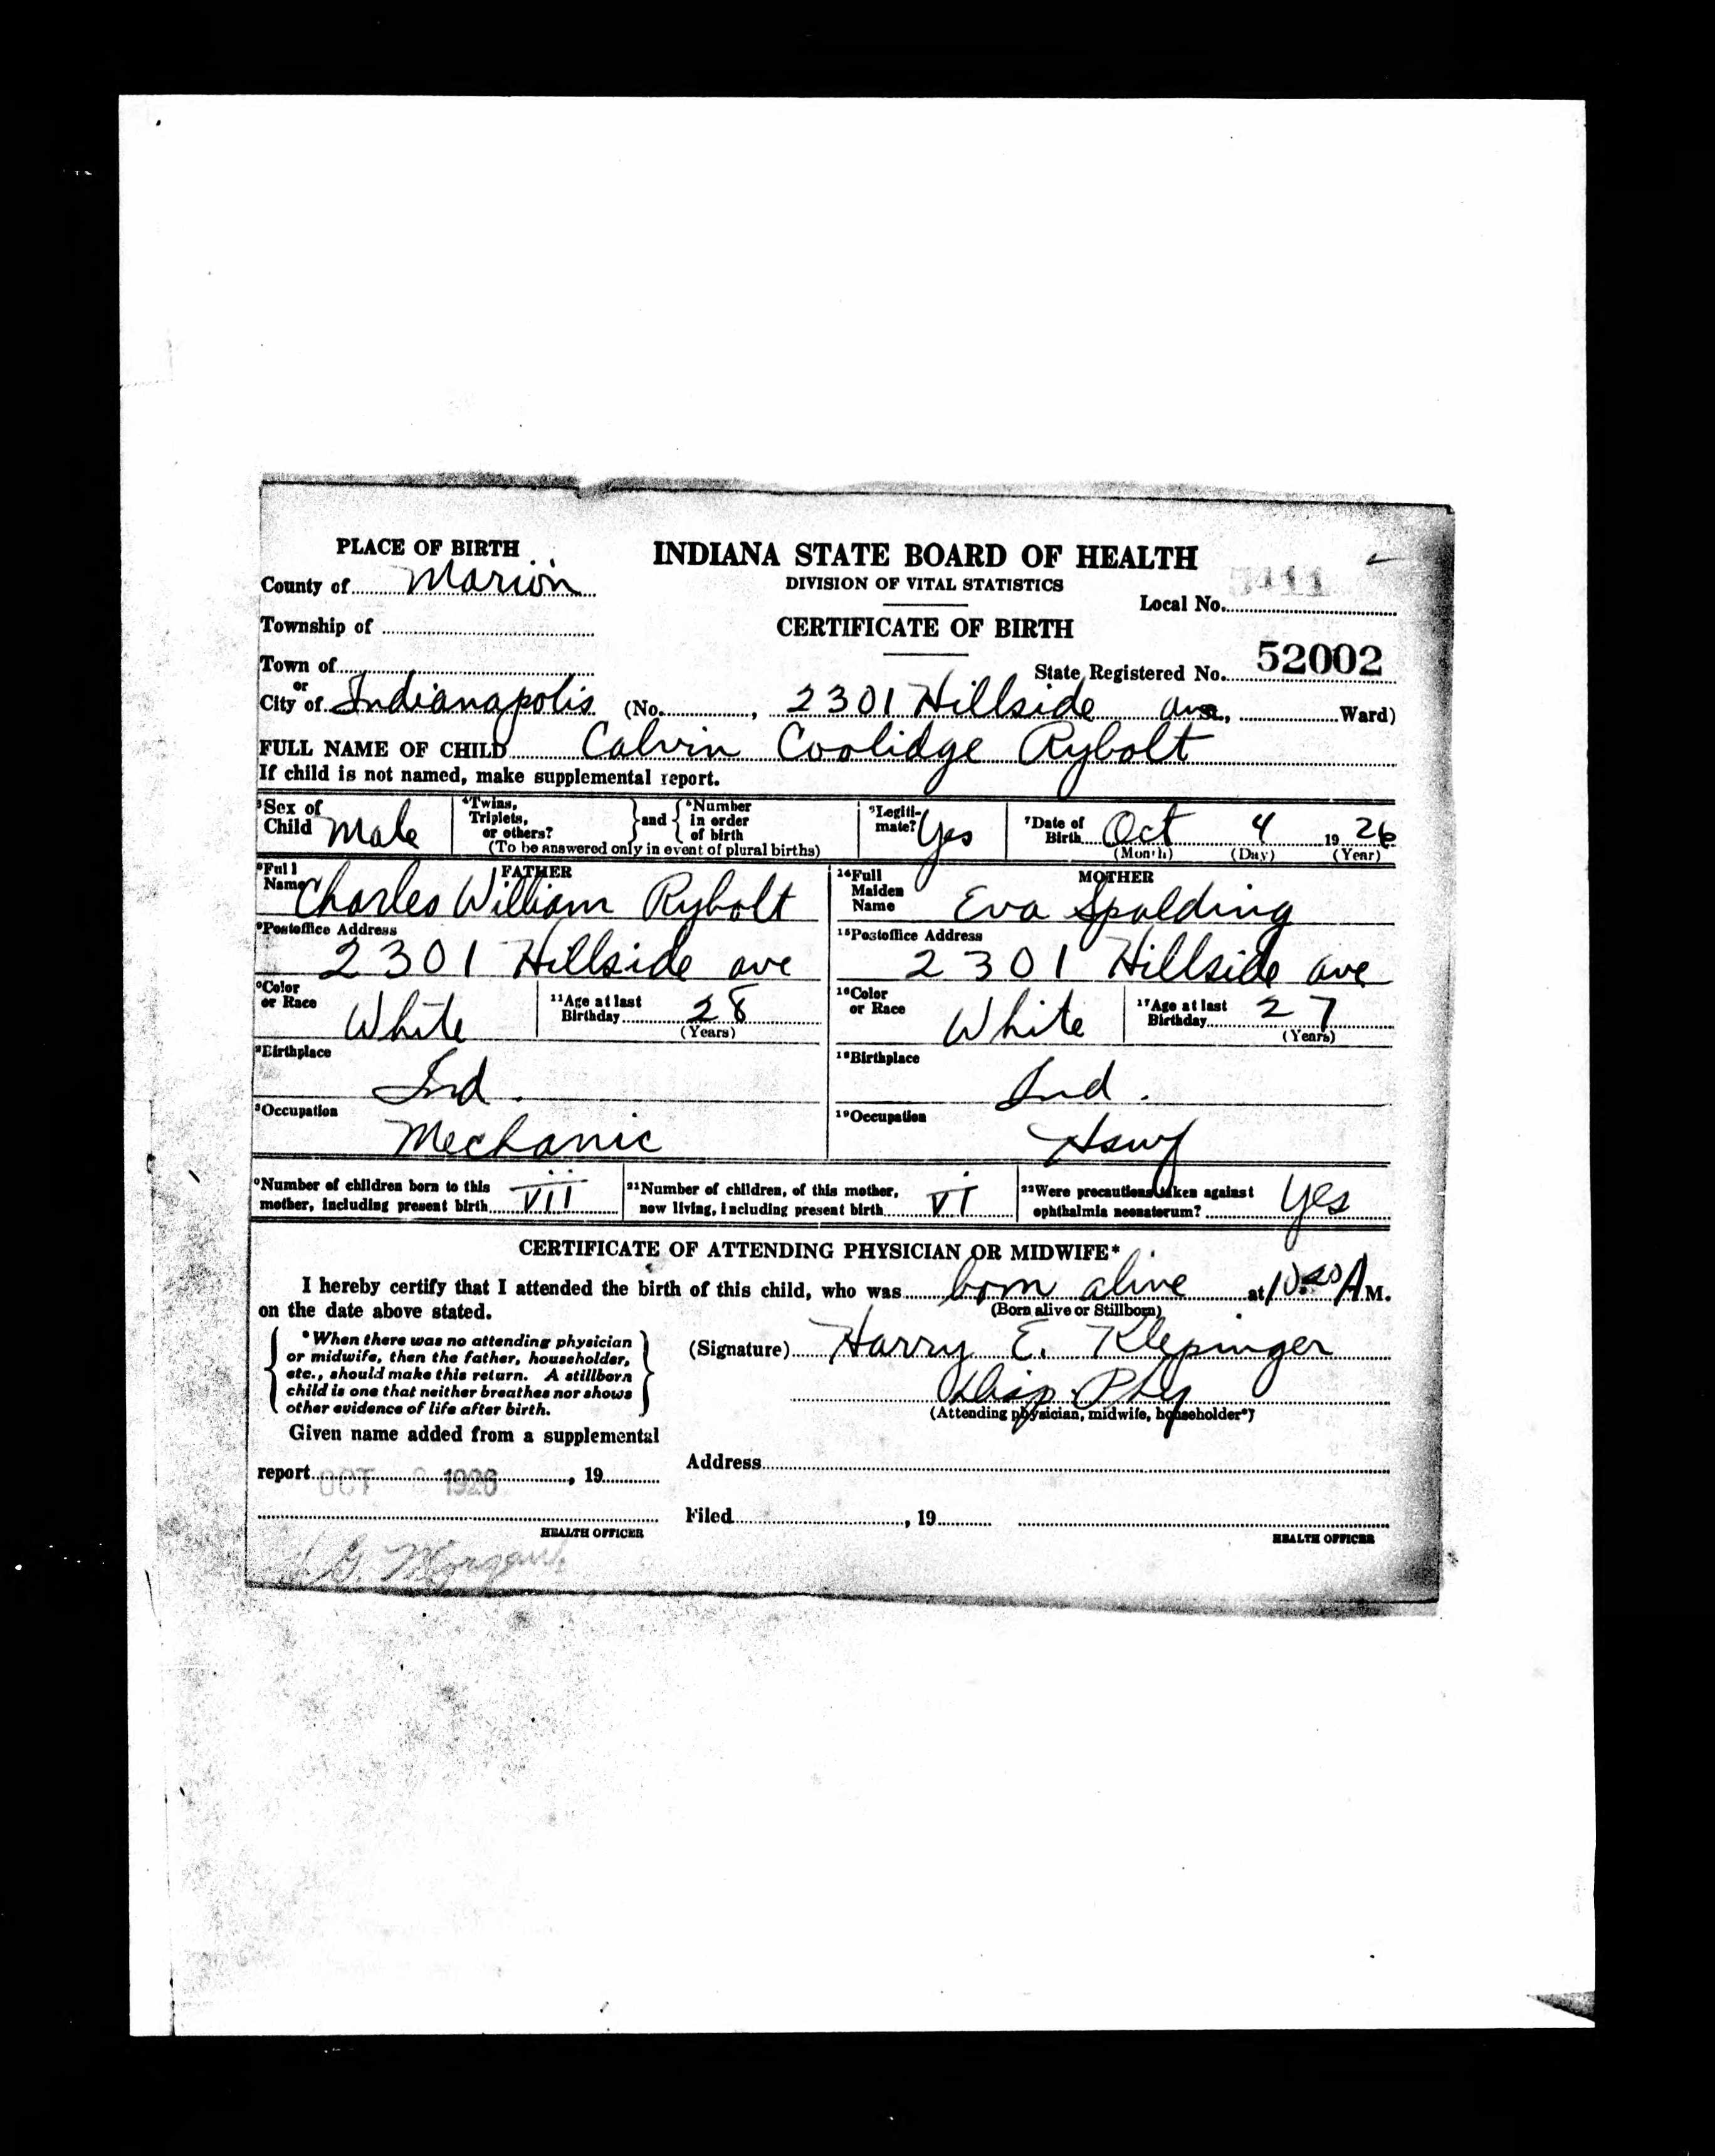 PLACE OF BIRTH
INDIANA STATE BOARD OF HEALTH
County of Marion
DIVISION OF VITAL STATISTICS
Local No.
Township of
CERTIFICATE OF BIRTH
Town of
State Registered No. 52002
or
City of Indianapolis (No. , 2301 Hillside ave , Ward)
FULL NAME OF CHILD Calvin Coolidge Rybolt
If child is not named, make supplemental report.
Sex of Child Male
Twins, Triplets, or others? and Number in order of birth
(To be answered only in event of plural births)
Legiti-mate? Yes
7Date of Birth Oct 4 19 26
(Month) (Day) (Year)
FATHER
Full Name Charles William Rybolt
MOTHER
14Full Maiden Name Eva Spalding
Postoffice Address
2301 Hillside ave
15Postoffice Address
2301 Hillside ave
Color or Race White
11Age at last Birthday 28
(Years)
16Color or Race White
17Age at last Birthday 27
(Years)
Birthplace
Ind.
18Birthplace
Ind.
Occupation
Mechanic
19Occupation
Hswf
Number of children born to this mother, including present birth VII
21Number of children, of this mother, now living, including present birth VI
22Were precautions taken against ophthalmia neonatorum? Yes
CERTIFICATE OF ATTENDING PHYSICIAN OR MIDWIFE*
I hereby certify that I attended the birth of this child, who was born alive at A M.
(Born alive or Stillborn)
on the date above stated.
*When there was no attending physician
or midwife, then the father, householder,
etc., should make this return. A stillborn
child is one that neither breathes nor shows
other evidence of life after birth.
(Signature) Harry E. Klepinger
Disp. Phy
(Attending physician, midwife, householder*)
Given name added from a supplemental
report OCT 1926 , 19
Address
Filed , 19
HEALTH OFFICER
HEALTH OFFICER
Morgan